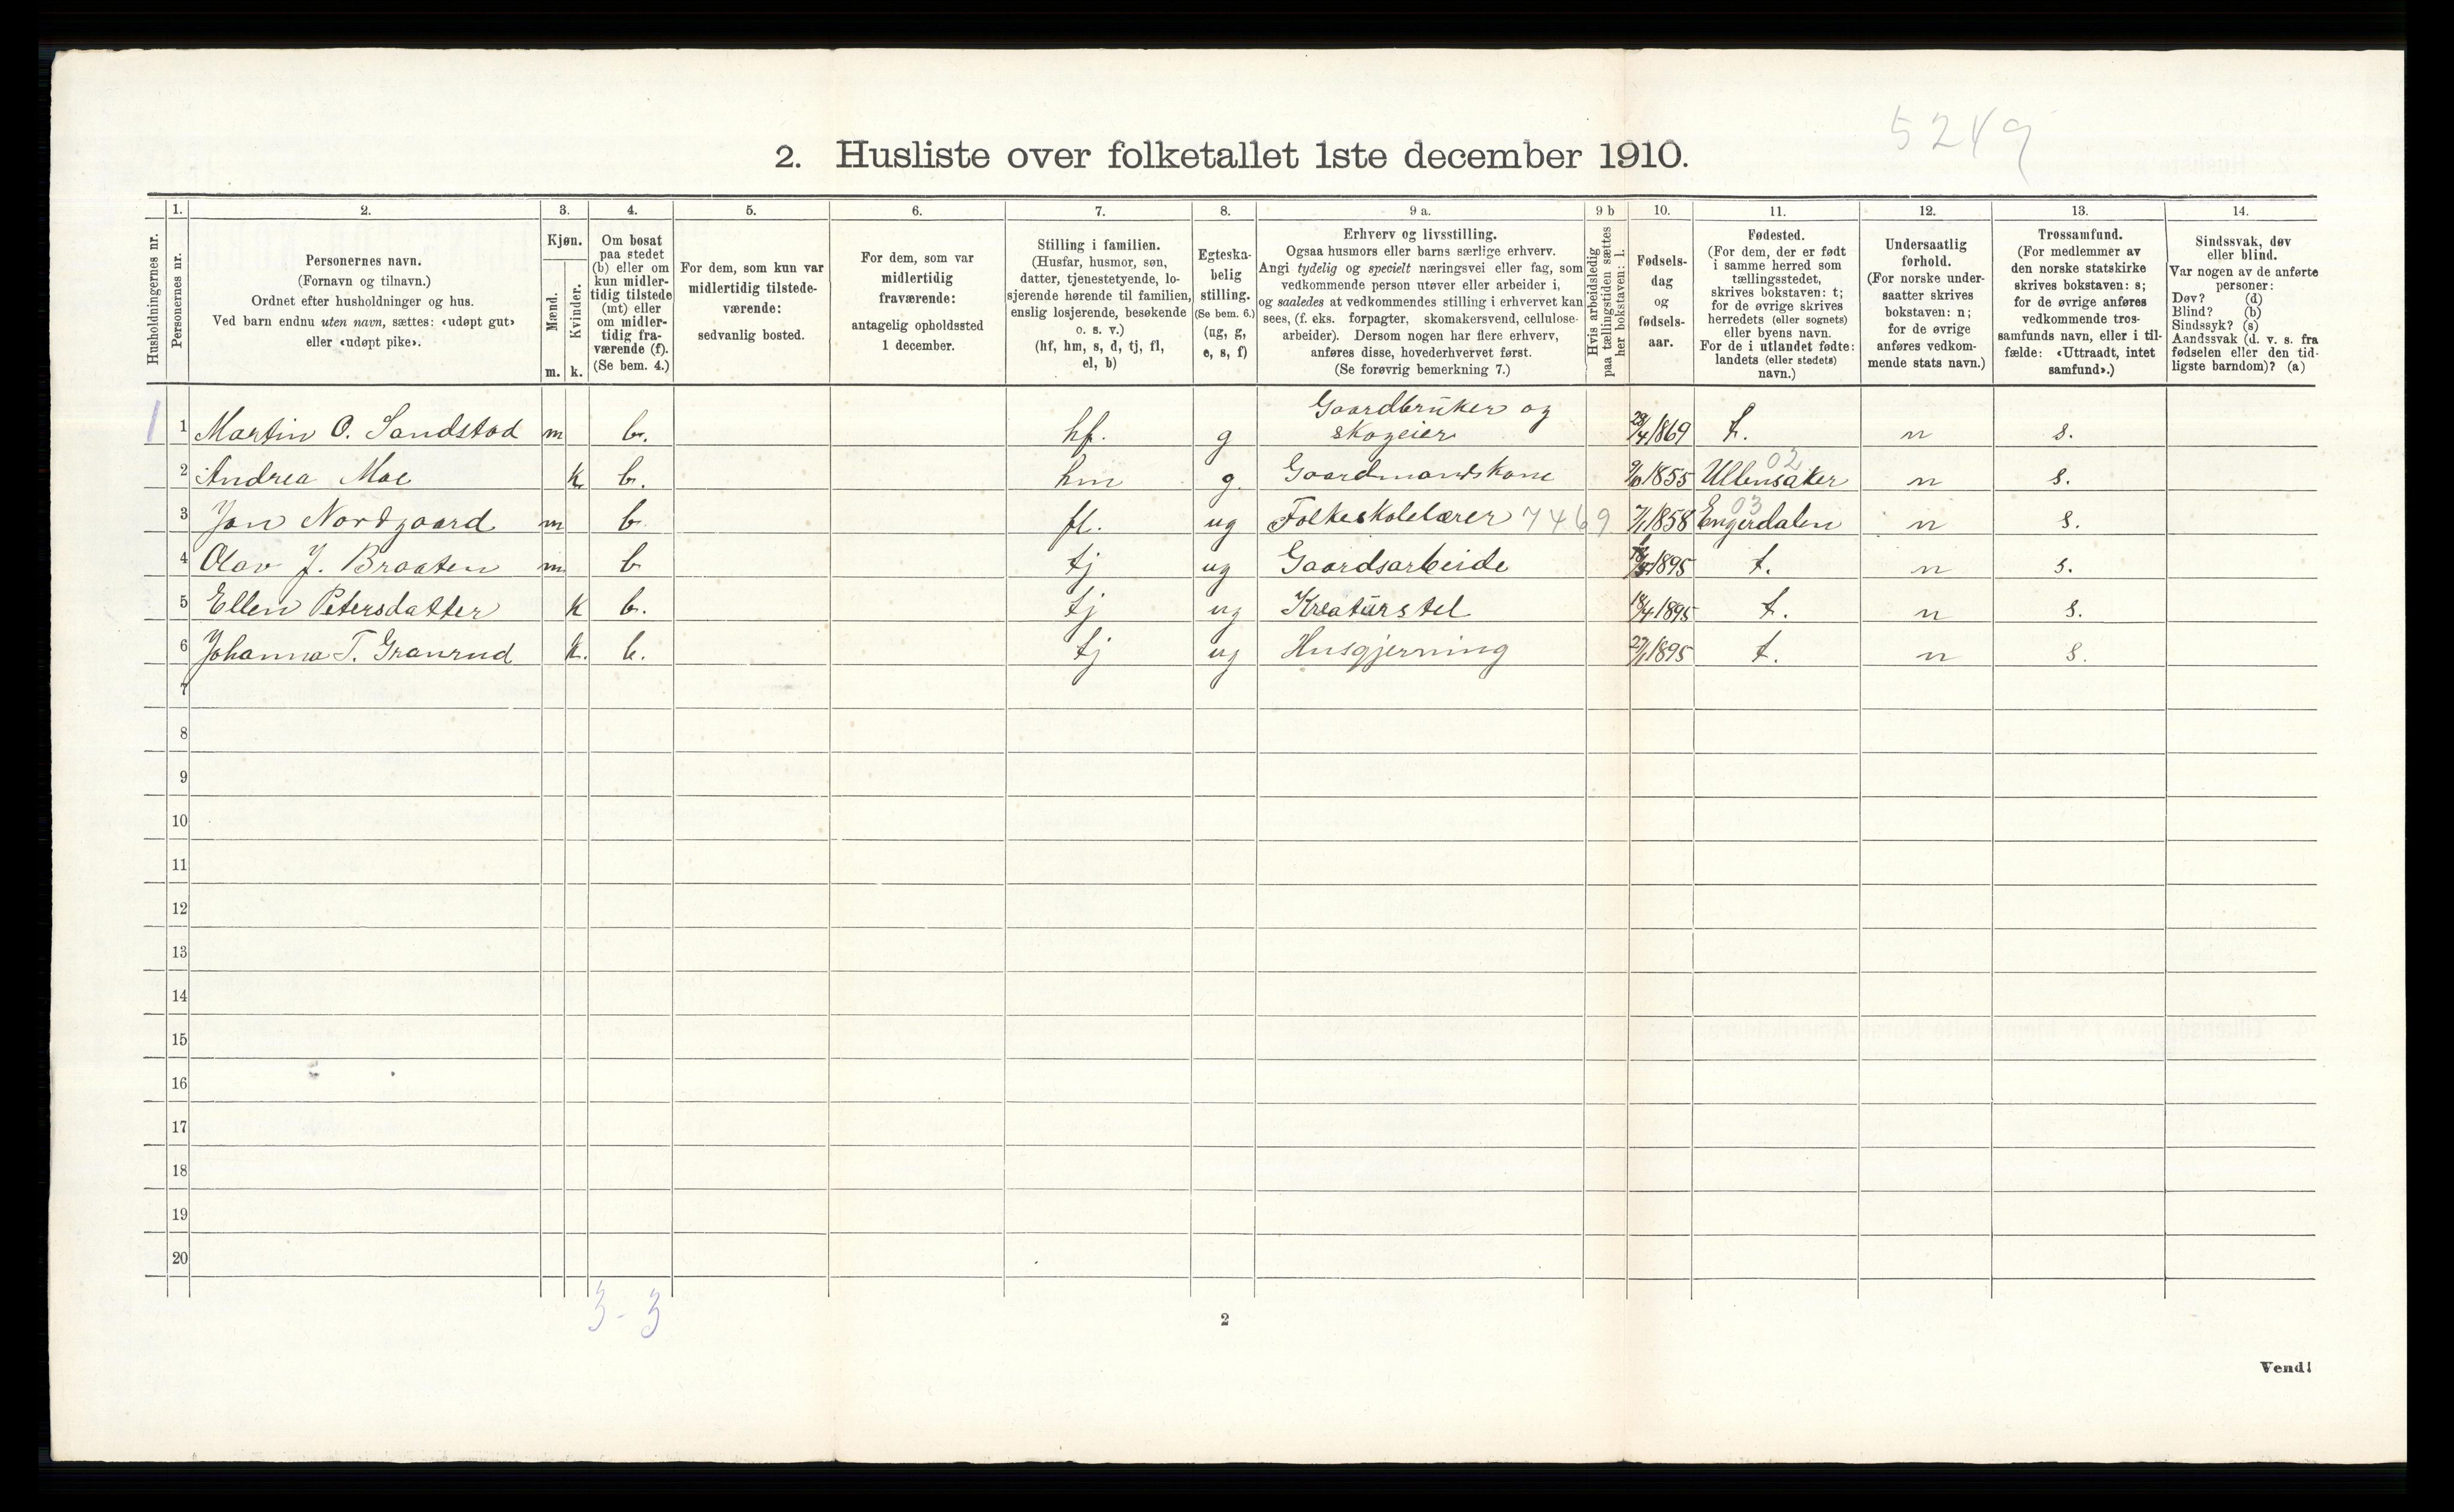 5249
2. Husliste over folketallet 1ste december 1910.
Husholdningernes nr.
1.
Personernes nr.
2.
Personernes navn.
(Fornavn og tilnavn.)
Ordnet efter husholdninger og hus.
Ved barn endnu uten navn, sættes: «udøpt gut»
eller «udøpt pike».
3.
Kjøn.
Mænd.
Kvinder.
m. k.
4.
Om bosat
paa stedet
(b) eller om
kun midler-
tidig tilstede
(mt) eller
om midler-
tidig fra-
værende (f).
(Se bem. 4.)
5.
For dem, som kun var
midlertidig tilstede-
værende:
sedvanlig bosted.
6.
For dem, som var
midlertidig
fraværende:
antagelig opholdssted
1 december.
7.
Stilling i familien.
(Husfar, husmor, søn,
datter, tjenestetyende, lo-
sjerende hørende til familien,
enslig losjerende, besøkende
o. s. v.)
(hf, hm, s, d, tj, fl,
el, b)
8.
Egteska-
belig
stilling.
(Se bem. 6.)
(ug, g,
e, s, f)
9 a.
Erhverv og livsstilling.
Ogsaa husmors eller barns særlige erhverv.
Angi tydelig og specielt næringsvei eller fag, som
vedkommende person utøver eller arbeider i,
og saaledes at vedkommendes stilling i erhvervet kan
sees, (f. eks. forpagter, skomakersvend, cellulose-
arbeider). Dersom nogen har flere erhverv,
anføres disse, hovederhvervet først.
(Se forøvrig bemerkning 7.)
9 b
Hvis arbeidsledig
paa tællingstiden sættes
her bokstaven: l.
10.
Fødsels-
dag
og
fødsels-
aar.
11.
Fødested.
(For dem, der er født
i samme herred som
tællingsstedet,
skrives bokstaven: t;
for de øvrige skrives
herredets (eller sognets)
eller byens navn.
For de i utlandet fødte:
landets (eller stedets)
navn.)
12.
Undersaatlig
forhold.
(For norske under-
saatter skrives
bokstaven: n;
for de øvrige
anføres vedkom-
mende stats navn.)
13.
Trossamfund.
(For medlemmer av
den norske statskirke
skrives bokstaven: s;
for de øvrige anføres
vedkommende tros-
samfunds navn, eller i til-
fælde: «Uttraadt, intet
samfund».)
14.
Sindssvak, døv
eller blind.
Var nogen av de anførte
personer:
Døv? (d)
Blind? (b)
Sindssyk? (s)
Aandssvak (d. v. s. fra
fødselen eller den tid-
ligste barndom)? (a)
Gaardbruker og
1 1 Martin O. Sandstad m b. hf. g skogeier 28/4 1869 t. n s.
02
2 Andrea Moe k. b. hm g. Gaardmandskone 9/6 1855 Ullensaker n s.
03
3 Jon Nordgaard m b. fl. ug Folkeskolelærer 7469 7/1 1858 Engerdalen n s.
4 Olav J. Braaten m b tj ug Gaardsarbeide 1895 t. n s.
5 Ellen Petersdatter k b. tj ug Kreaturstel 18/4 1895 t. n s.
6 Johanna T. Granrud k. b. tj ug Husgjerning 27/1 1895 t. n s.
7
8
9
10
11
12
13
14
15
16
17
18
19
20
3 - 3
2
Vend!